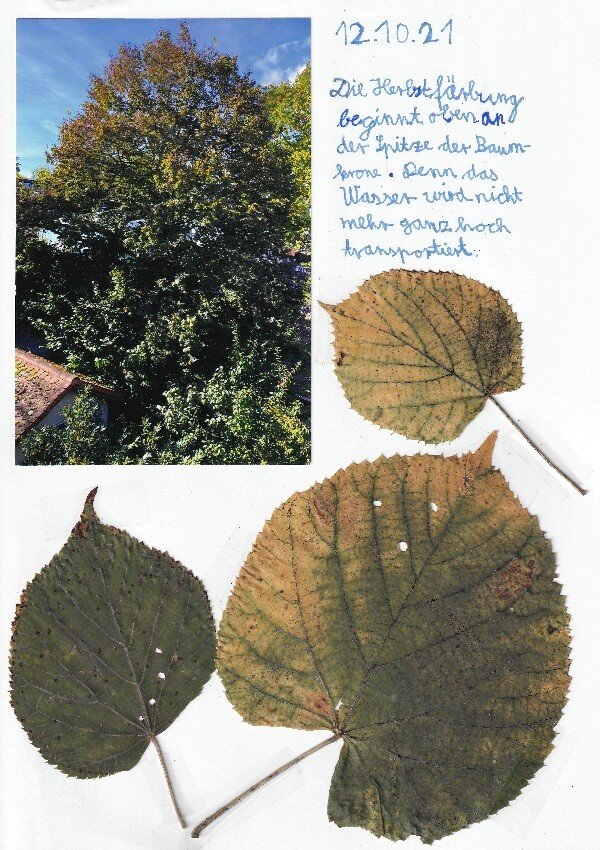 12.10.21
Die Herbstfärbung
beginnt oben an
der Spitze der Baum-
krone. Denn das
Wasser wird nicht
mehr ganz hoch
transportiert.